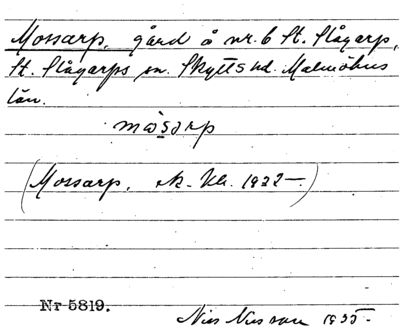 Mossarp, gård å nr. 6 St. Slågarp,
St. Slågarps sn. Skytts hd. Malmöhus
län.
måsarp
(Mossarp, Ek. Kb. 1922–.)
Nr 5819.
Nils Nilsson 1935.